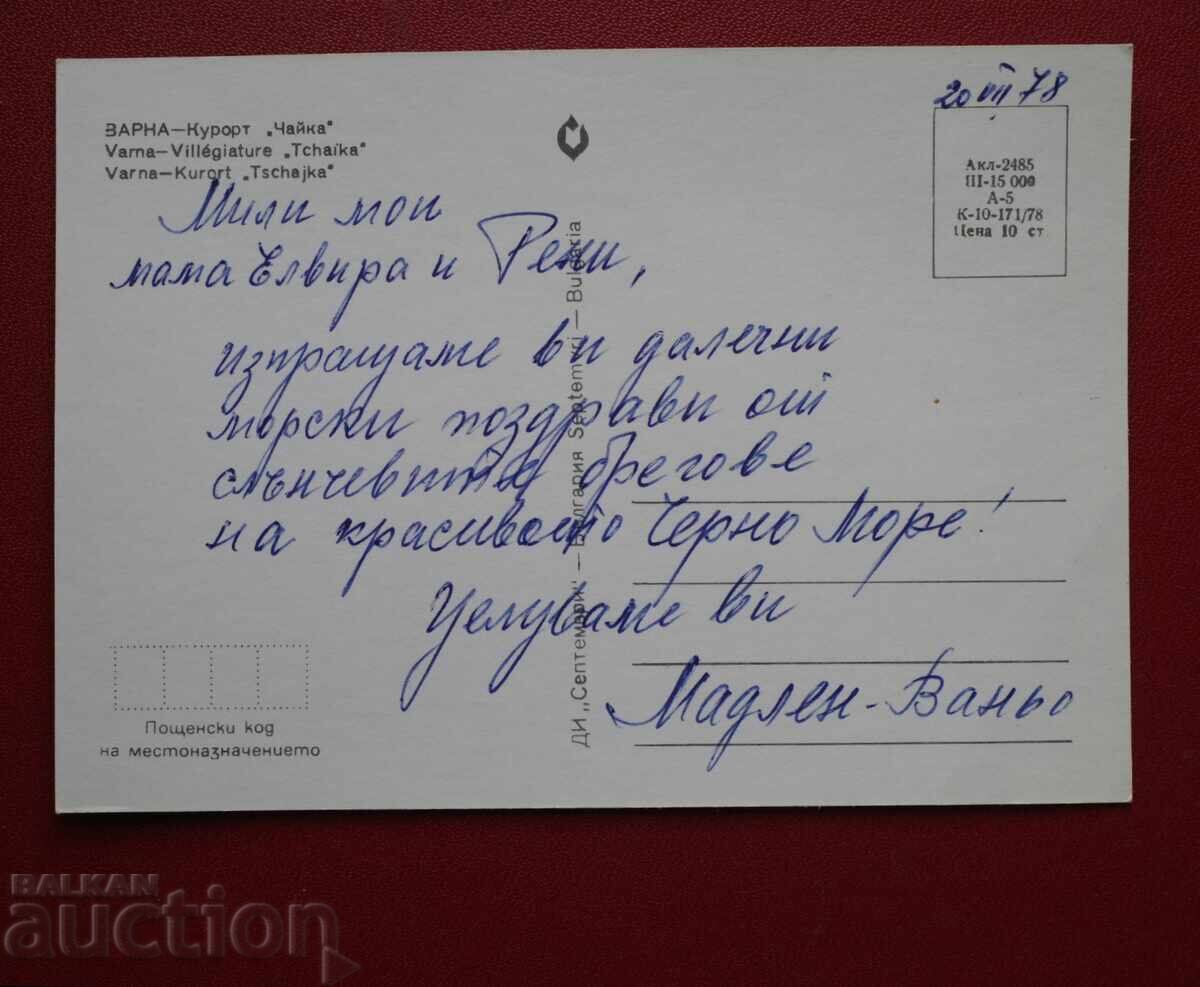 20 VII 78
ВАРНА—Курорт „Чайка"
Varna—Villégiature „Tchaïka"
Varna—Kurort „Tschajka"
Акл-2485
Ш-15 000
А-5
К-10-171/78
Цена 10 ст.
Мили мои
мама Елвира и Рени,
изпращаме ви далечни
морски поздрави от
слънчевите брегове
на красивото Черно Море!
Целуваме ви
Мадлен-Ваньо
ДИ „Септември" — България Septemvri — Bulgaria
Пощенски код
на местоназначението
BALKAN
auction